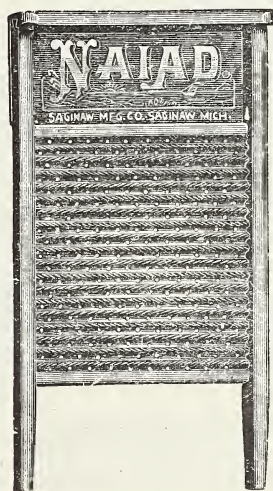 NAIAD
SAGINAW MFG. CO. SAGINAW MICH.